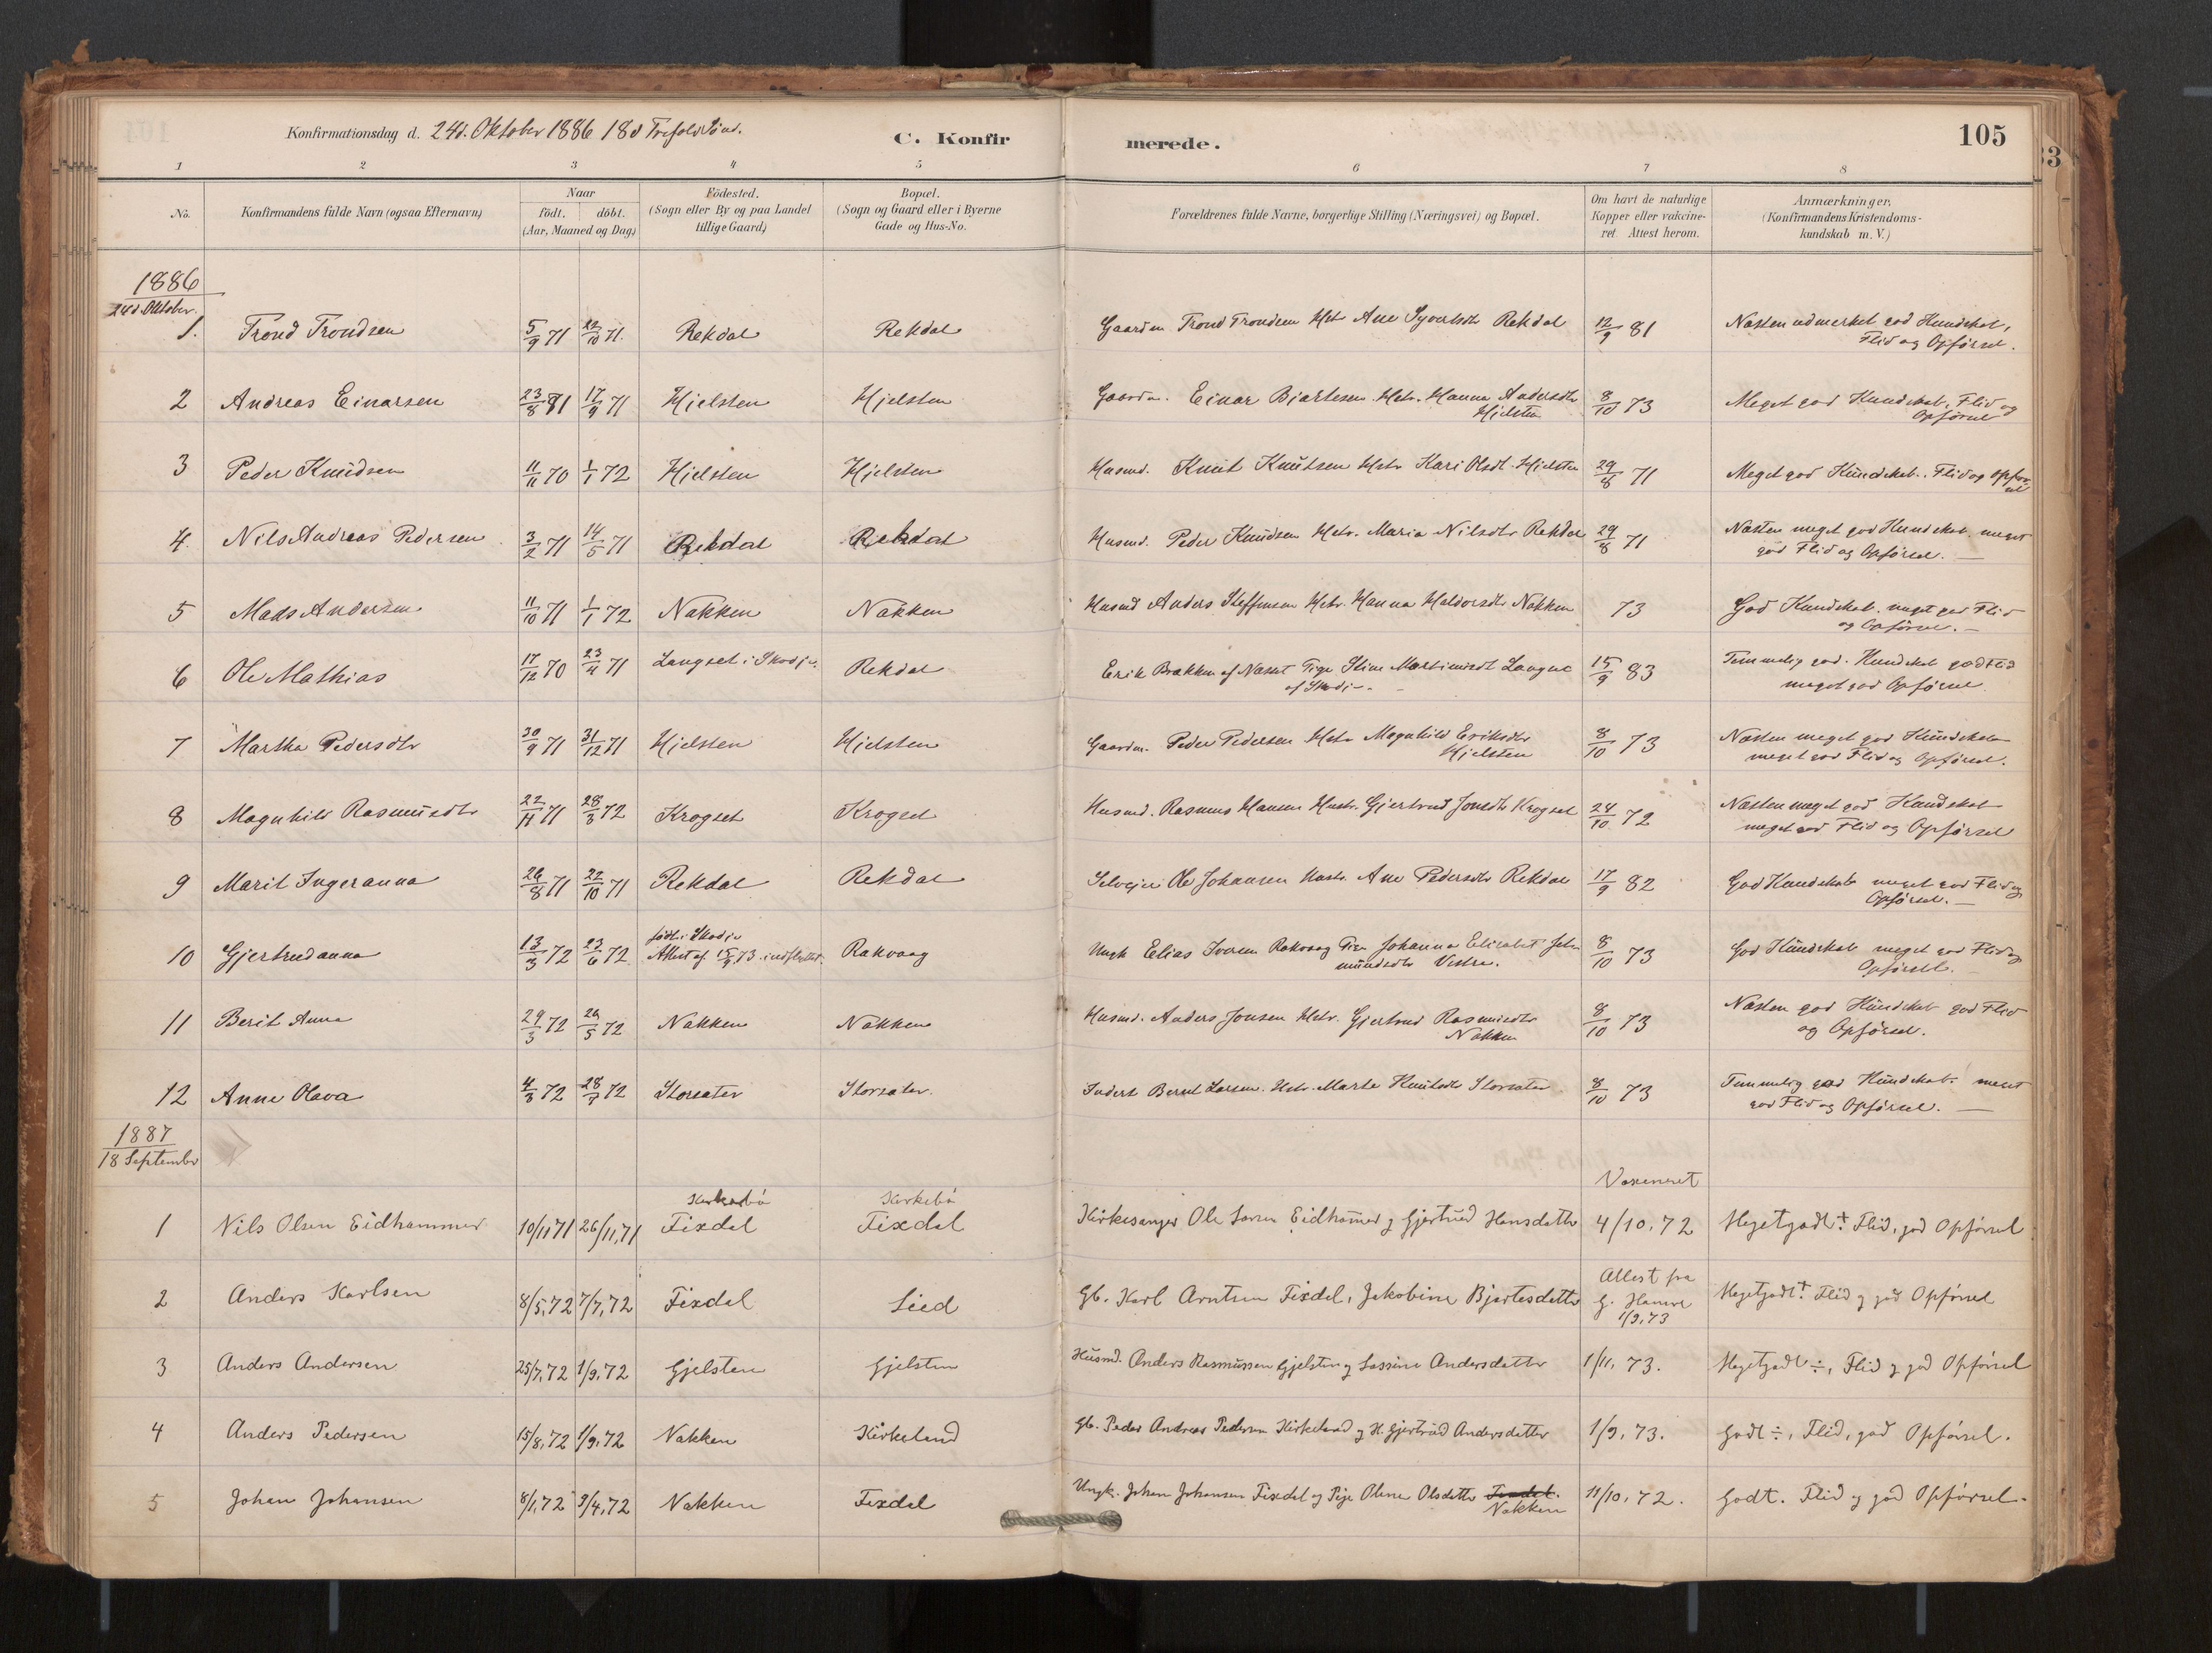 Konfirmationsdag d. 24d. Oktober 1886 18d Trefold Sønd.
C. Konfir
merede.
105
33
1 2 3 4 5 6 7 8
No.
Konfirmandens fulde Navn (ogsaa Efternavn)
Naar
födt. döbt.
(Aar, Maaned og Dag)
Födested.
(Sogn eller By og paa Landet
tillige Gaard)
Bopæl.
(Sogn og Gaard eller i Byerne
Gade og Hus-No.
Forældrenes fulde Navne, borgerlige Stilling (Næringsvei) og Bopæl.
Om havt de naturlige
Kopper eller vakcine-
ret. Attest herom.
Anmærkninger.
(Konfirmandens Kristendoms-
kundskab m. V.)
1886
24d. Oktober.
1. Trond Trondsen 5/9 71 22/10 71. Rekdal Rekdal Gaardm. Trond Trondsen Hst. Ane Syvertsdt Rekdal 12/9 81 Næsten udmerket god Kundskab,
Flid og Opførsel.
2 Andreas Einarsen 23/8 81 17/9 71 Hjelsten Hjelsten Gaardm. Einar Bjartesen Hstr. Hanna Andersdtr
Hjelsten 8/10 73 Meget god Kundskab, Flid og
Opførsel
3 Peder Knudsen 11/11 70 1/1 72 Hjelsten Hjelsten Husmd. Knut Knutsen Hstr Kari Olsdt. Hjelsten 29/8 71 Meget god Kundskab. Flid og Opfør
sel
4. Nils Andreas Pedersen 3/2 71 14/5 71 Rekdal Rekdal Husmd. Peder Knudsen Hstr. Maria Nilsdtr Rekdal 29/8 71 Næsten meget god Kundskab. meget
god Flid og Opførsel. —
5 Mads Andersen 11/10 71 1/1 72 Nakken Nakken Husmd Anders Steffensen Hstr. Hanna Haldorsdtr Nakken 73 God Kundskab. meget god Flid
og Opførsel. —
6 Ole Mathias 17/12 70 23/4 71 Langset i Skodje. Rekdal Erik Brakken af Næsset Pige Stine Martinusdt Langse
af Skodje 15/9 83 Temmelig god. Kundskab god Flid
meget god Opførsel
7 Martha Pedersdtr 30/9 71 31/12 71 Hjelsten Hjelsten Gaardm. Peder Pedersen Hstr Magnhild Eriksdtr
Hjelsten 8/10 73 Næsten meget god Kundskab
meget god Flid og Opførsel.
8 Magnhild Rasmusdtr 22/11 71 28/3 72 Krogset Krogset Husmd. Rasmus Hansen Hustr. Gjertrud Jonsdtr Krogset 24/10 72 Næsten meget god Kundskab
meget god Flid og Opførsel
9 Marit Ingeranna 26/8 71 22/10 71 Rekdal Rekdal Selvejer Ole Johansen Hustr. Ane Pedersdtr Rekdal 17/9 82 God Kundskab meget god Flid og
Opførsel. —
10 Gjertrudanna 13/3 72 23/6 72 født i Skodje
Attest af 15/9 73. indflyttet. Rakvaag Ungk Elias Iversen Rakvaag Pige Johanna Elisabet
mundsdtr Vestre. 8/10 73 God Kundskab meget god Flid og
Opførsel.
11 Berit Anna 29/3 72 26/5 72 Nakken Nakken Husmd. Anders Jonsen Hstr. Gjertrud Rasmusdtr
Nakken 8/10 73 Næsten god Kundskab god Flid
og Opførsel.
12 Anne Olava 4/3 72 28/7 72 Storsæter Storsæter. Inderst Bernt Larsen. Hstr. Marte Knutsdtr Storsæter 8/10 73 Temmelig god Kundskab. meget
god Flid og Opførsel. —
1887
18 September
Vaxeneret
Kirkebø Kirkebø
1 Nils Olsen Eidhammer 10/11 71 26/11, 71 Fixdal Fixdal Kirkesanger Ole Larsen Eidhammer g Gjertrud Hansdatter 4/10, 72 Megetgodt +. Flid, god Opførsel
2 Anders Karlsen 8/5, 72 7/7, 72 Fixdal Lied Gb. Karl Arntsen Fixdal, Jakobine Bjartesdatter Attest fra
G. Hamre
1/9, 73 Megetgodt +. Flid g god Opførsel
3 Anders Andersen 25/7, 72 1/9, 72 Gjelsten Gjelsten Husmd. Anders Rasmussen Gjelsten g Lassine Andersdatter 1/11, 73. Megetgodt ÷, Flid g god Opførsel
4 Anders Pedersen 15/8, 72 1/9, 72 Nakken Kirkeland Gb. Peder Andreas Pedersen Kirkeland g H. Gjertrud Andersdatter 1/9, 73. Godt ÷, Flid, god Opførsel.
5 Johan Johansen 8/1, 72 9/4, 72 Nakken Fixdal Ungk. Johan Johansen Fixdal og Pige Olene Olsdatter Fixdal.
Nakken 11/10, 72. Godt. Flid g god Opførsel.